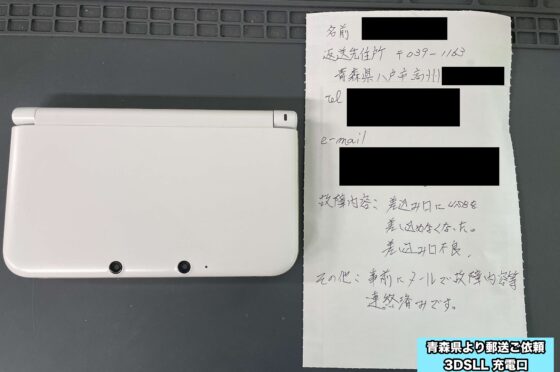 名前
返送先住所 〒039-1163
青森県八戸市高州
tel
e-mail
故障内容: 差込み口にUSBを
差し込めなくなった。
差し込み口不良。
その他: 事前にメールで故障内容等
連絡済みです。
青森県より郵送ご依頼
3DSLL 充電口